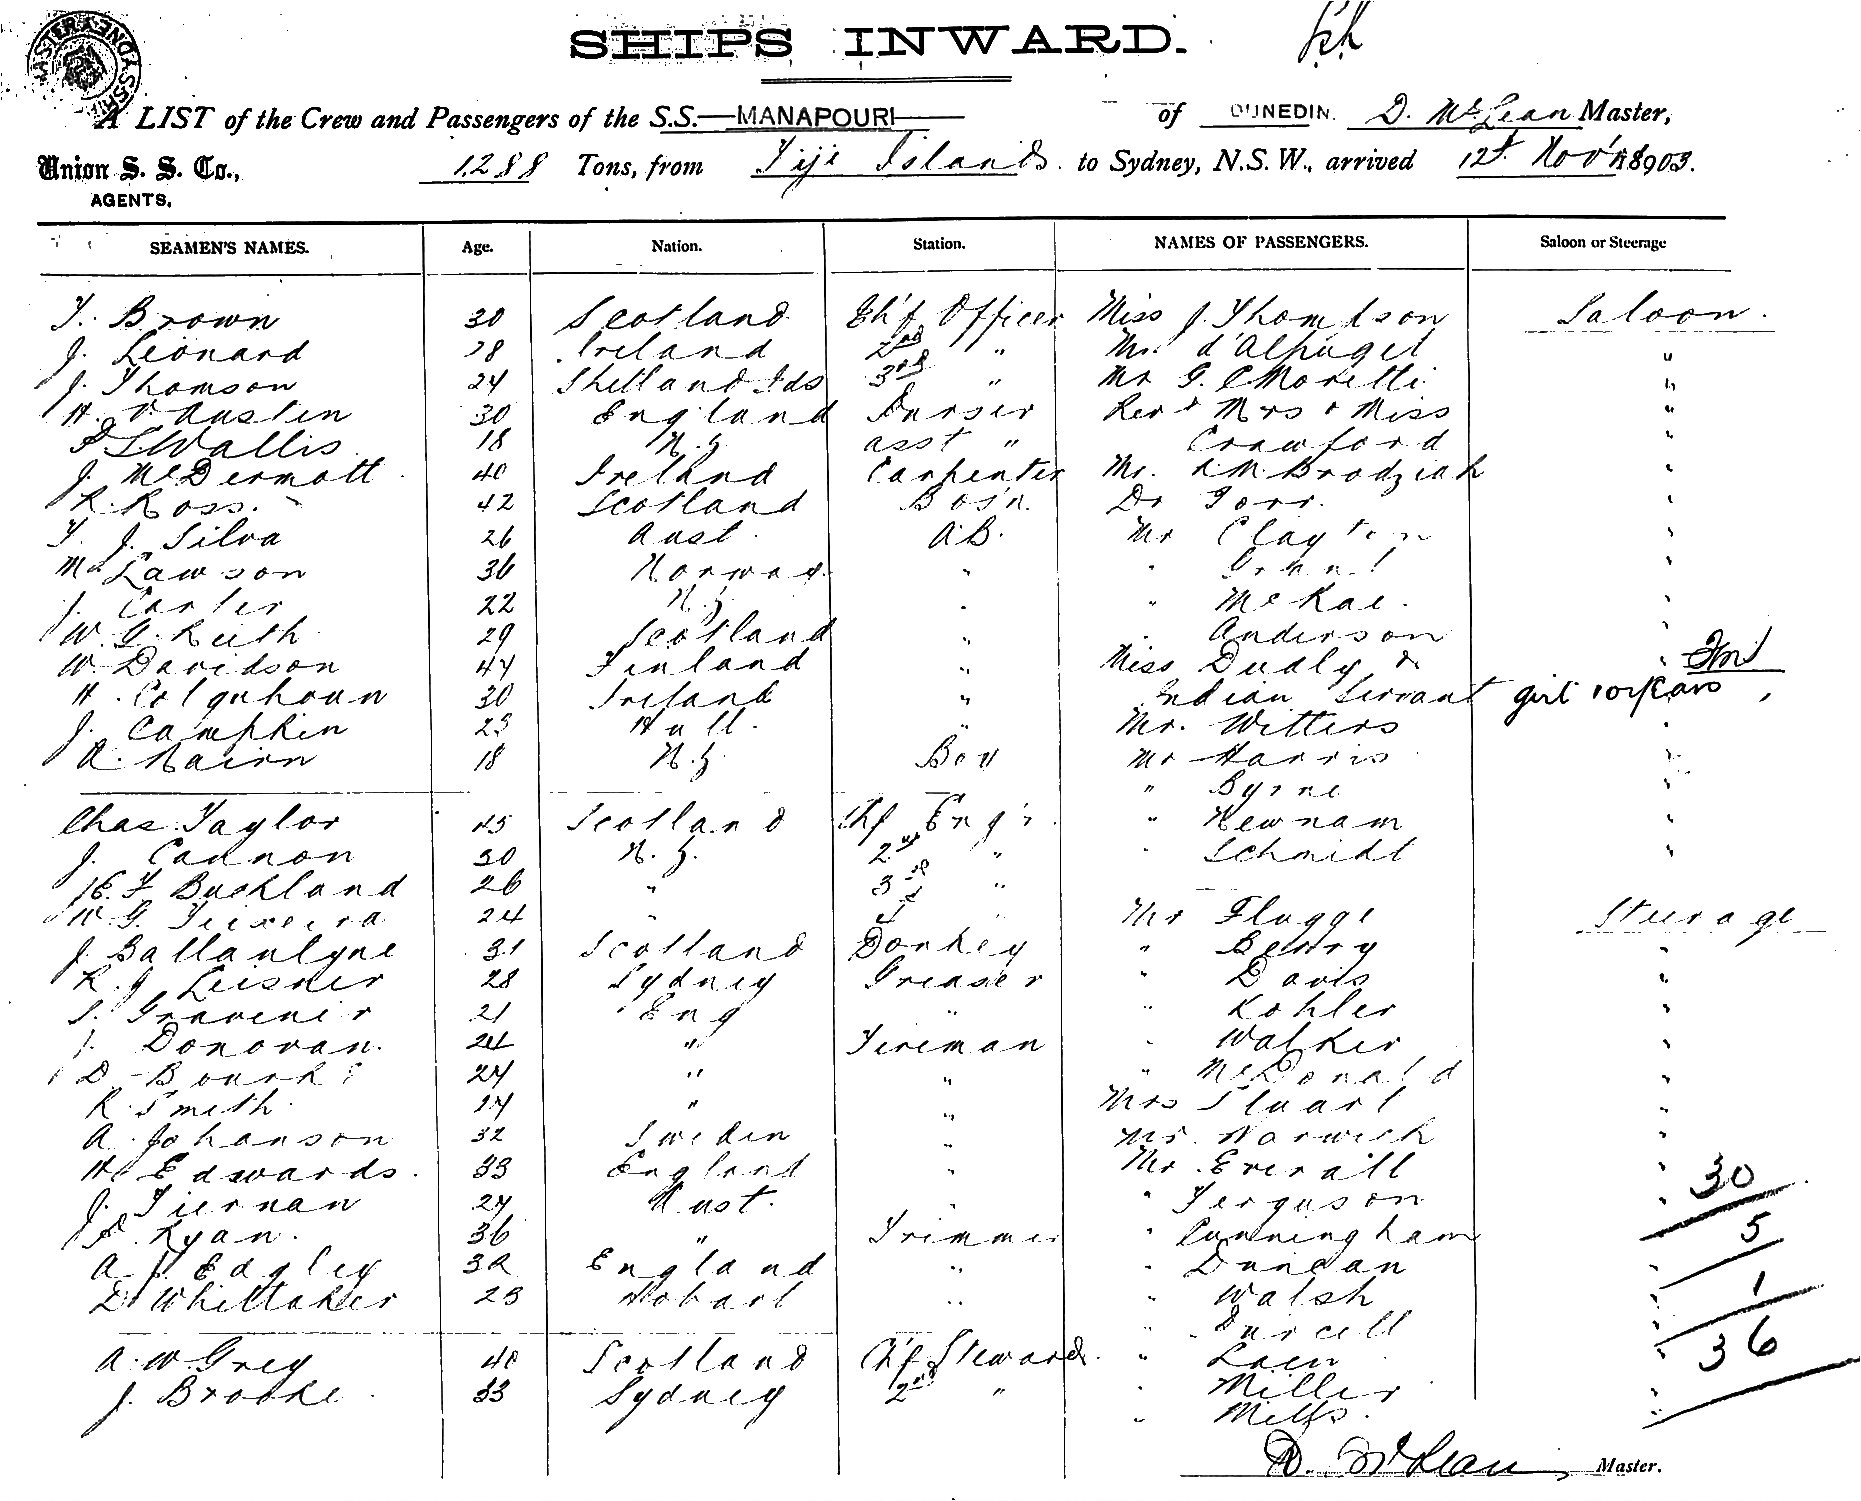 SHIPS INWARD.
A LIST of the Crew and Passengers of the S.S. MANAPOURI of DUNEDIN. D. McLean Master,
Union S. S. Co., 1288 Tons, from Fiji Islands to Sydney, N.S.W., arrived 12th Nov'r 1903.
AGENTS.
SEAMEN'S NAMES. Age. Nation. Station. NAMES OF PASSENGERS. Saloon or Steerage
T. Brown 30 Scotland Ch'f Officer Miss J. Thompson Saloon.
J. Leonard 28 Ireland 2nd " Mr. d'Alpuget "
J. Thomson 24 Shetland Ids 3rd " Mr G. Moretti "
H. V. Austin 30 England Purser Rev & Mrs & Miss "
Wallis 18 N.Z. asst " Crawford "
J. McDermott 40 Ireland Carpenter Mr. A M Brodziak "
R. Ross. 42 Scotland Bos'n. Dr Torr. "
T. J. Silva 26 Aust. A.B. Mr Clayton "
Lawson 36 Norway " " Grant "
J. Carter 22 N.Z. " " McRae. "
W. G. Ruth 29 Scotland " " Anderson "
W. Davidson 44 Finland " Miss Dudly & "
H. Colquhoun 30 Ireland " Indian Servant girl 10 years "
J. Campkin 23 Hull. " Mr. Witters "
A. Nairn 18 N.Z. Boy Mr Harris "
" Byrne "
Chas Taylor 45 Scotland Chf Eng'r. " Newnam "
J. Cannon 30 N.Z. 2nd " " Schmidt "
F Buckland 26 " 3rd "
W. G. Teixeira 24 " 4 " Mr Flugge Steerage
J. Ballantyne 31 Scotland Donkey " Berry "
R. J Leisner 28 Sydney Greaser " Davis "
S. Gravener 21 Eng " " Kohler "
J. Donovan. 24 " Fireman " Walker "
D. Bourke 24 " " " McDonald "
R. Smith. 24 " " Mrs Stuart "
A. Johanson 32 Sweden " Mr. Norwich "
H Edwards. 33 England " Mr. Everall "
J. Tiernan 24 Aust. " " Ferguson " 30
P. Ryan. 36 " Trimmer " Cunningham 5
A. J. Edgley 32 England " " Duncan "
D. Whittaker 23 Hobart " " Walsh " 1
" Purcell "
A. W. Grey 40 Scotland Ch'f Steward. " " 36
J. Brooke. 33 Sydney 2nd " " Miller "
" Mills. "
D. McLean Master.